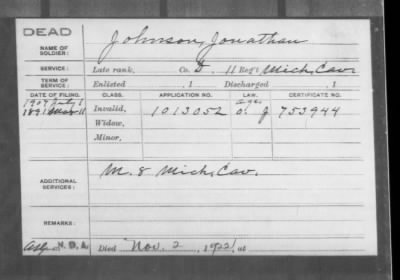 DEAD
NAME OF SOLDIER: Johnson, Jonathan
SERVICE: Late rank, Co. D, 11 Reg't Mich. Cav.
TERM OF SERVICE: Enlisted , 1 Discharged , 1
DATE OF FILING. CLASS. APPLICATION NO. LAW. CERTIFICATE NO.
1907 July 1 age
1891 Mar 11 Invalid, 1013052 O. J 753944
Widow,
Minor,
ADDITIONAL SERVICES: M. 8 Mich. Cav.
REMARKS:
N. D. A. Died Nov. 2, 1922, at